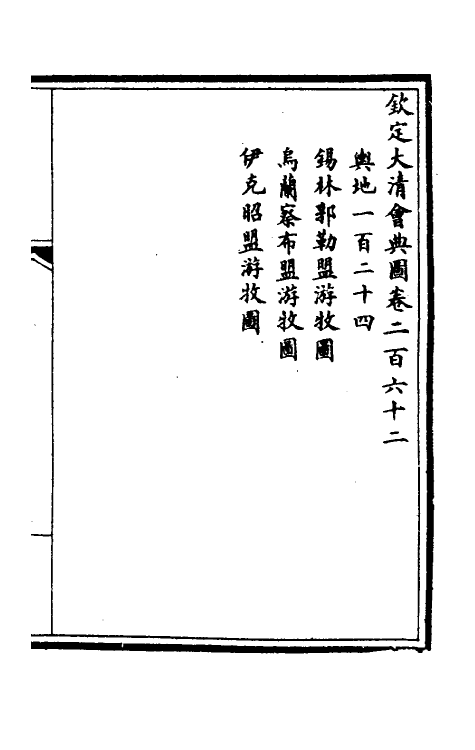 欽定大清會典圖卷二百六十二
輿地一百二十四
錫林郭勒盟游牧圖
烏蘭察布盟游牧圖
伊克昭盟游牧圖